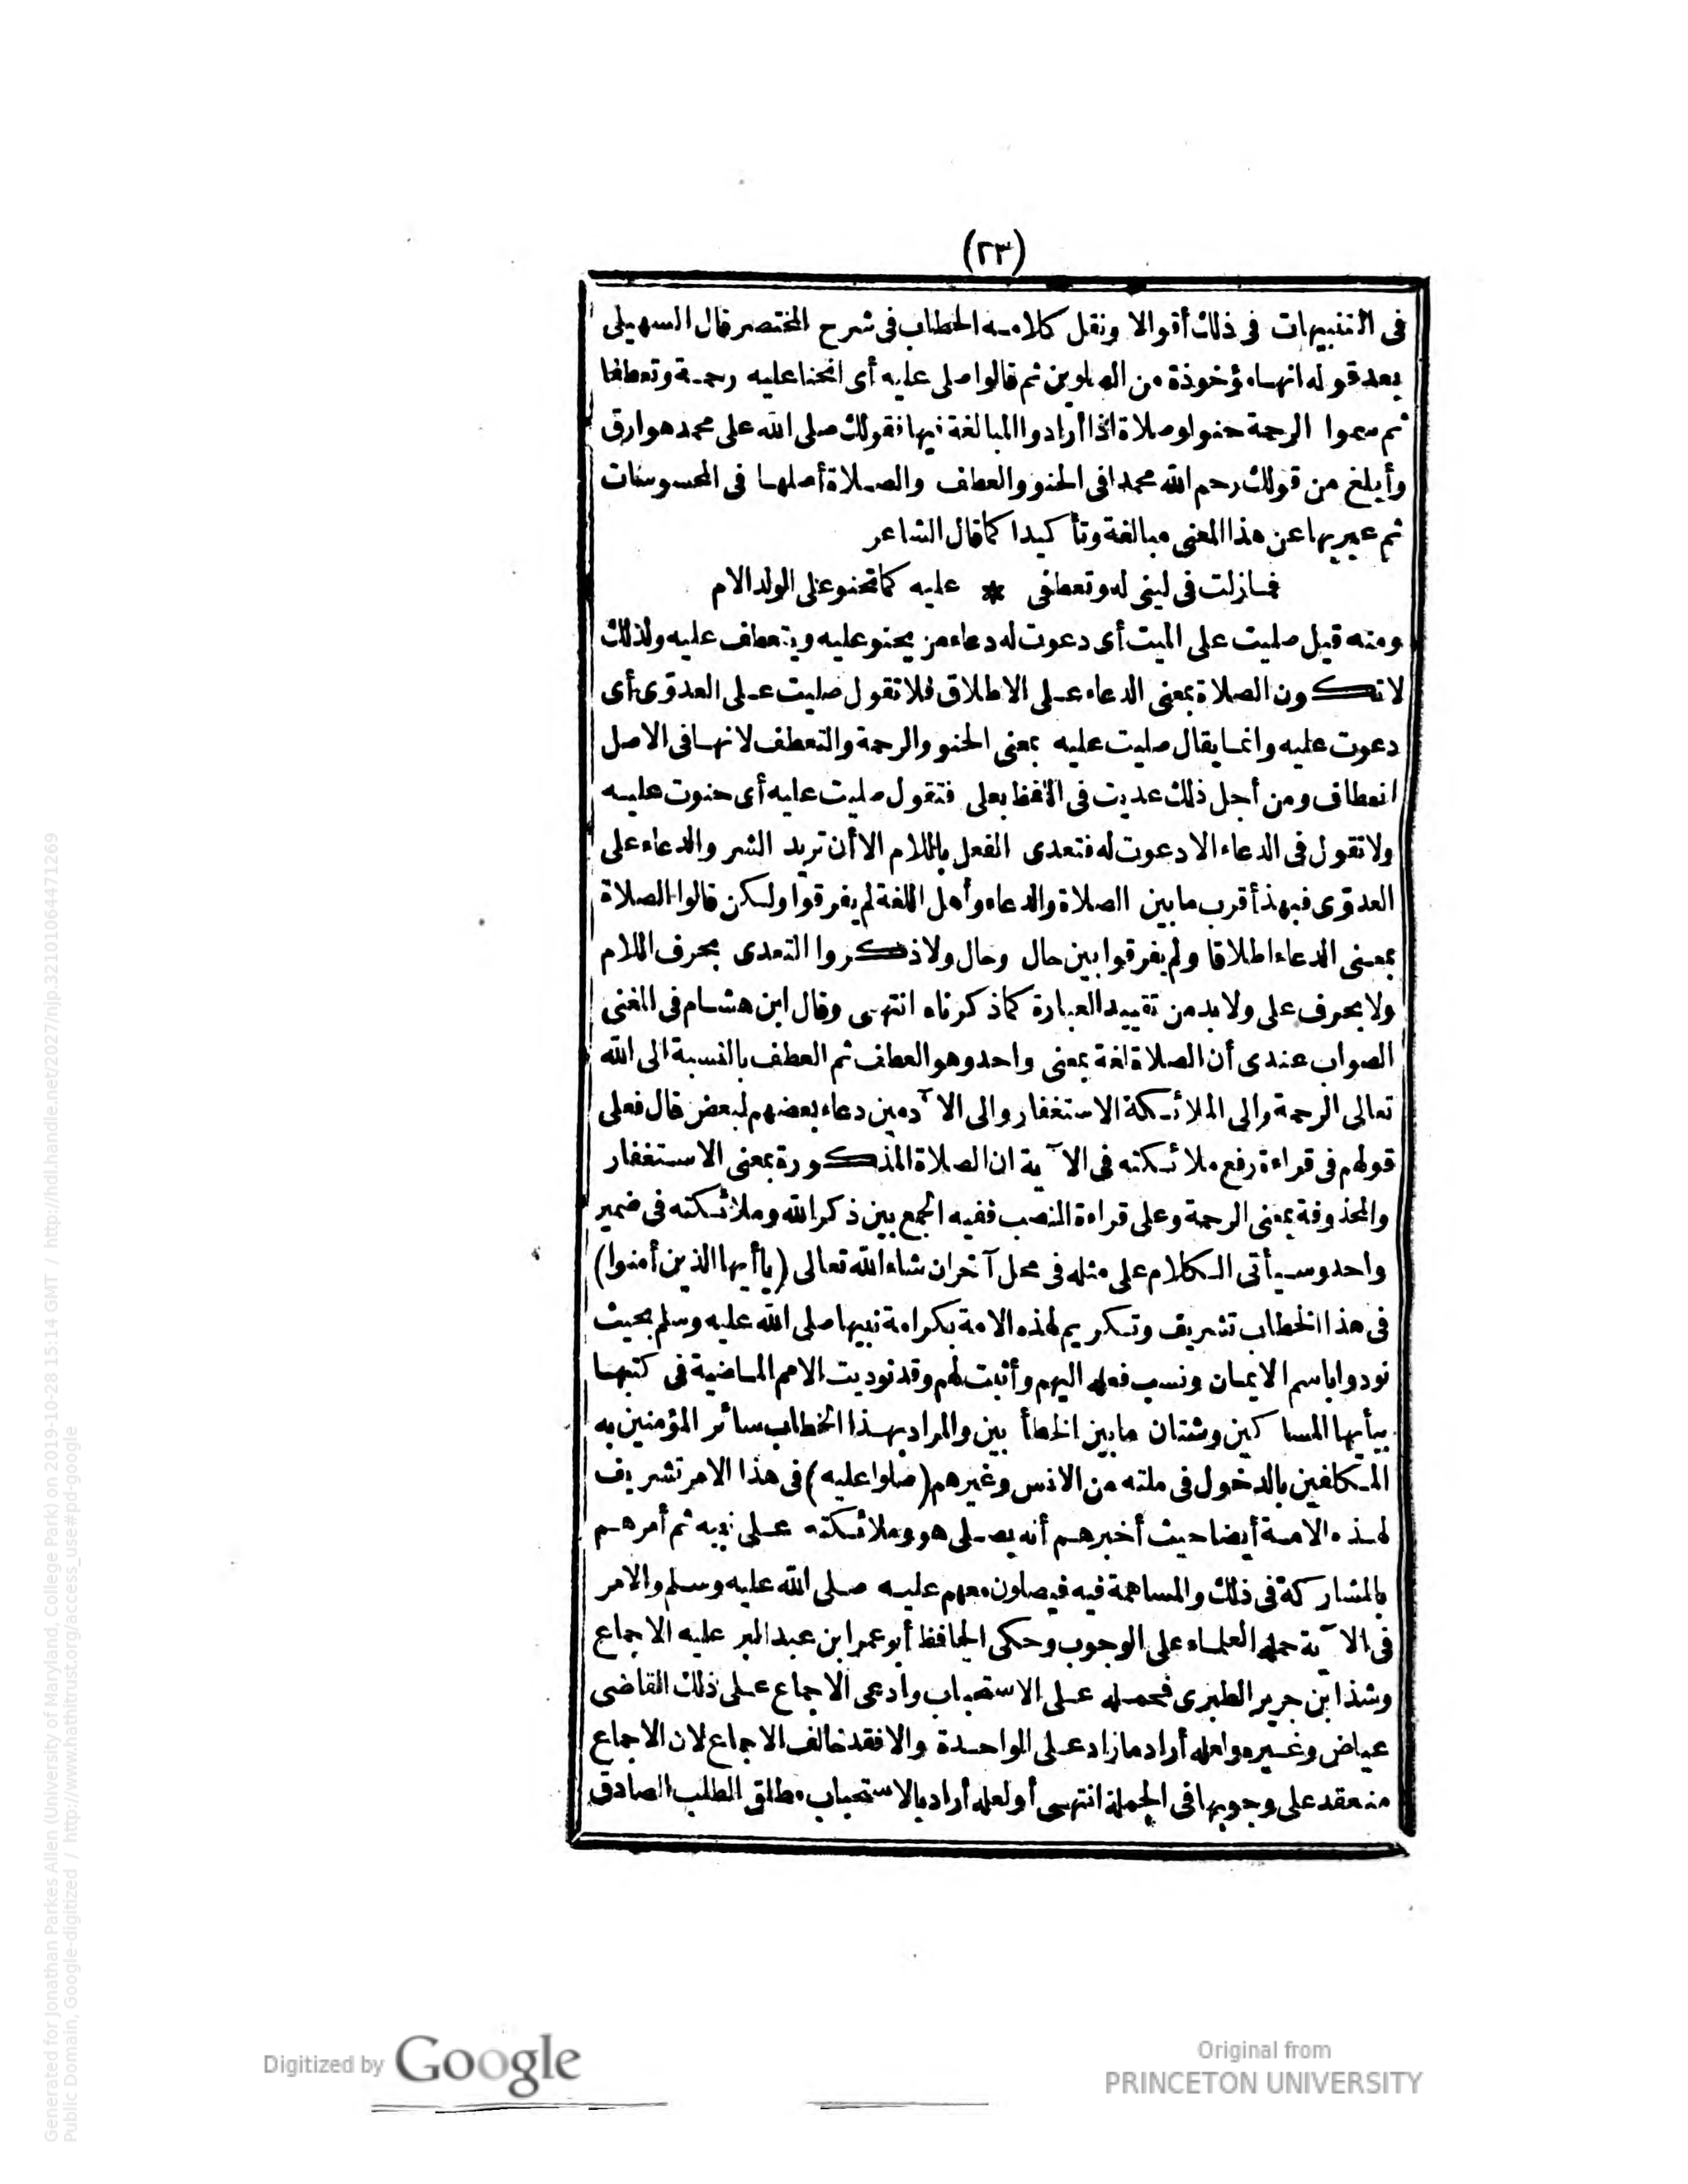 (٢٣)
فى التنبيهات فى ذلك أقوالا ونقل كلامه الحطاب فى شرح المختصر قال السهيلى
بعد قوله انها مؤخوذة من الصلوين ثم قالوا صلى عليه أى انحنا عليه رحمة وتعطفا
ثم سموا الرحمة حنوا وصلاة اذا أرادوا المبالغة فيها فقولك صلى الله على محمد هو ارق
وأبلغ من قولك رحم الله محمدا فى الحنو والعطف والصلاة أصلها فى المحسوسات
ثم عبر بها عن هذا المعنى مبالغة وتأكيدا كما قال الشاعر
فما زلت فى لينى له وتعطفى * عليه كما تحنو على الولد الام
ومنه قيل صليت على الميت أى دعوت له دعاء من يحنو عليه ويتعطف عليه ولذلك
لا تكون الصلاة بمعنى الدعاء على الاطلاق فلا تقول صليت على العدوّ ى أى
دعوت عليه وانما يقال صليت عليه بمعنى الحنو والرحمة والتعطف لانها فى الاصل
انعطاف ومن أجل ذلك عديت فى اللفظ بعلى فتقول صليت عليه أى حنوت عليه
ولا تقول فى الدعاء الا دعوت له فتعدى الفعل باللام الا أن تريد الشر والدعاء على
العدوّ ى فبهذ أقرب ما بين الصلاة والدعاء وأهل اللغة لم يفرقوا ولكن قالوا الصلاة
بمعنى الدعاء اطلاقا ولم يفرقوا بين حال وحال ولا ذكروا التعدى بحرف اللام
ولا بحرف على ولا بد من تقييد العبارة كما ذكرناه انتهى وقال ابن هشام فى المغنى
الصواب عندى أن الصلاة لغة بمعنى واحد وهو العطف ثم العطف بالنسبة الى الله
تعالى الرحمة والى الملائكة الاستغفار والى الآدمين دعاء بعضهم لبعض قال فعلى
قولهم فى قراءة رفع ملائكته فى الآية ان الصلاة المذكورة بمعنى الاستغفار
والمحذوفة بمعنى الرحمة وعلى قراءة النصب ففيه الجمع بين ذكر الله وملائكته فى ضمير
واحد وسيأتى الكلام على مثله فى محل آخر ان شاء الله تعالى (يا أيها الذين أمنوا)
فى هذا الخطاب تشريف وتكريم لهذه الامة بكرامة نبيها صلى الله عليه وسلم بحيث
نودوا باسم الايمان ونسب فعله اليهم وأثبت لهم وقد نوديت الامم الماضية فى كتبها
بيأيها المساكين وشتان ما بين الخطأ بين والمراد بهذا الخطاب سائر المؤمنين به
المكلفين بالدخول فى ملته من الانس وغيرهم (صلوا عليه) فى هذا الامر تشريف
لهذه الامة أيضا حيث أخبرهم أنه يصلى هو وملائكته على نبيه ثم أمرهم
بالمشاركة فى ذلك والمساهمة فيه فيصلون معهم عليه صلى الله عليه وسلم والامر
فى الآية حمله العلماء على الوجوب وحكى الحافظ أبو عمر ابن عبد البر عليه الاجماع
وشذ ابن جرير الطبرى فحمله على الاستحباب وادعى الاجماع على ذلك القاضى
عياض وغيره ولعله أراد ما زاد على الواحدة والا فقد خالف الاجماع لان الاجماع
منعقد على وجوبها فى الجملة انتهى أو لعله أراد بالاستحباب مطلق الطلب الصادق
Digitized by Google
Original from
PRINCETON UNIVERSITY
Generated for Jonathan Parkes Allen (University of Maryland, College Park) on 2019-10-28 15:14 GMT / http://hdl.handle.net/2027/njp.32101064471269
Public Domain, Google-digitized / http://www.hathitrust.org/access_use#pd-google